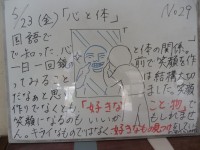 5/23(金)「心と体」 No29
国語で
で知った、心と体の関係。
一日一回鏡の前で笑顔を作
ってみること は結構大切
だなぁと思 しました。
作りでなくとも「好きなこと・物」で
笑顔になるのもいいかもしれませ
ん。キライなものではなく好きなもの見つけをしてい